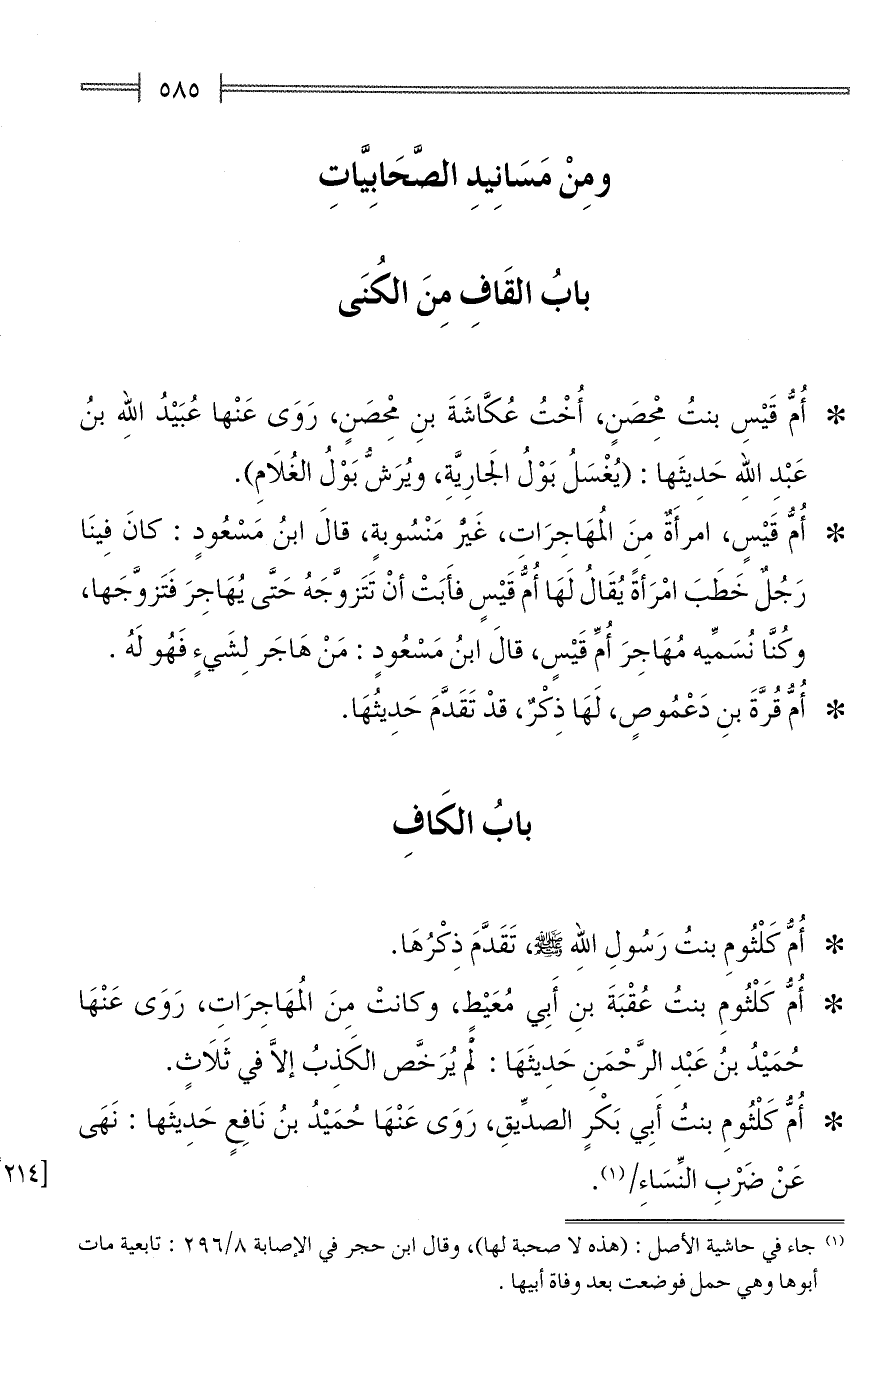 ٥٨٥
ومِنْ مَسَانِيدِ الصَّحَابِيَّاتِ
بابُ القَافِ مِنَ الكُنَى
* أُمُّ قَيْسِ بنتُ مِحْصَنٍ، أُخْتُ عُكَّاشَةَ بنِ مِحْصَنٍ، رَوَى عَنْها عُبَيْدُ اللهِ بنُ
عَبْدِ اللهِ حَدِيثَها : (يُغْسَلُ بَوْلُ الجَارِيَّةِ، ويُرَشُّ بَوْلُ الغُلَامِ).
* أُمُّ قَيْسٍ، امرأَةٌ مِنَ المُهَاجِرَاتِ، غَيْرُ مَنْسُوبةٍ، قالَ ابنُ مَسْعُودٍ : كانَ فِينَا
رَجُلٌ خَطَبَ امْرَأةً يُقَالُ لَهَا أُمُّ قَيْسٍ فأَبَتْ أنْ تَتَزوَّجَهُ حَتَّى يُهَاجِرَ فَتَزوَّجَها،
وكُنَّا نُسَمِّيه مُهَاجِرَ أُمِّ قَيْسٍ، قالَ ابنُ مَسْعُودٍ : مَنْ هَاجَر لِشَيءٍ فَهُو لَهُ .
* أُمُّ قُرَّةَ بنِ دَعْمُوصٍ، لَهَا ذِكْرٌ، قدْ تَقَدَّمَ حَدِيثُهَا.
بابُ الكَافِ
* أُمُّ كَلْثُومِ بنتُ رَسُولِ اللهِ ﷺ، تَقَدَّمَ ذِكْرُهَا.
* أُمُّ كَلْثُومِ بنتُ عُقْبَةَ بنِ أَبِي مُعَيْطٍ، وكانتْ مِنَ المُهَاجِرَاتِ، رَوَى عَنْهَا
حُمَيْدُ بنُ عَبْدِ الرَّحْمَنِ حَدِيثَهَا : لَمْ يُرَخَّص الكَذِبُ إلاَّ في ثَلَاثٍ.
* أُمُّ كَلْثُومِ بنتُ أَبِي بَكْرٍ الصدِّيقِ، رَوَى عَنْهَا حُمَيْدُ بنُ نَافِعٍ حَدِيثَها : نَهَى
عَنْ ضَرْبِ النِّسَاءِ/(١). [٢١٤
(١) جاء في حاشية الأصل : (هذه لا صحبة لها)، وقال ابن حجر في الإصابة ٢٩٦/٨ : تابعية مات
أبوها وهي حمل فوضعت بعد وفاة أبيها .